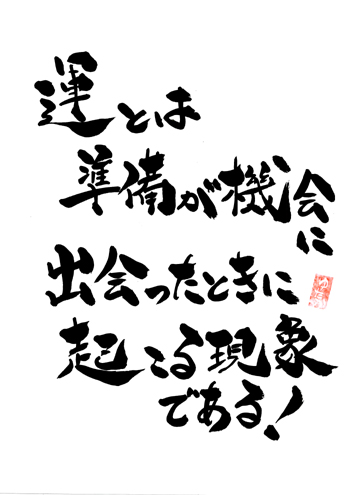 運とは
準備が機会に
出会ったときに
起こる現象
である!